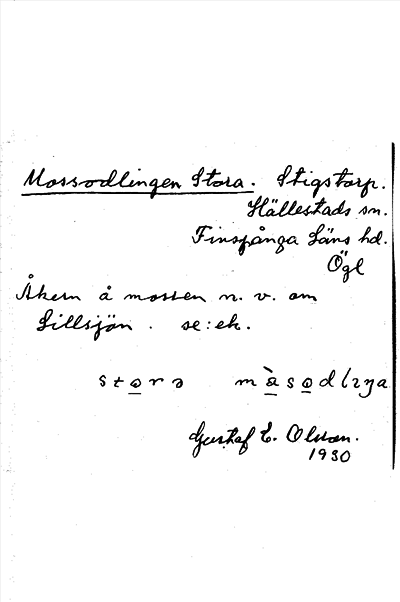 Mossodlingen Stora. Stigstorp.
Hällestads sn.
Finspånga Läns hd.
Ögl
Åkern å mossen n. v. om
Lillsjön. se: ek.
Gustaf E. Olsson.
1930